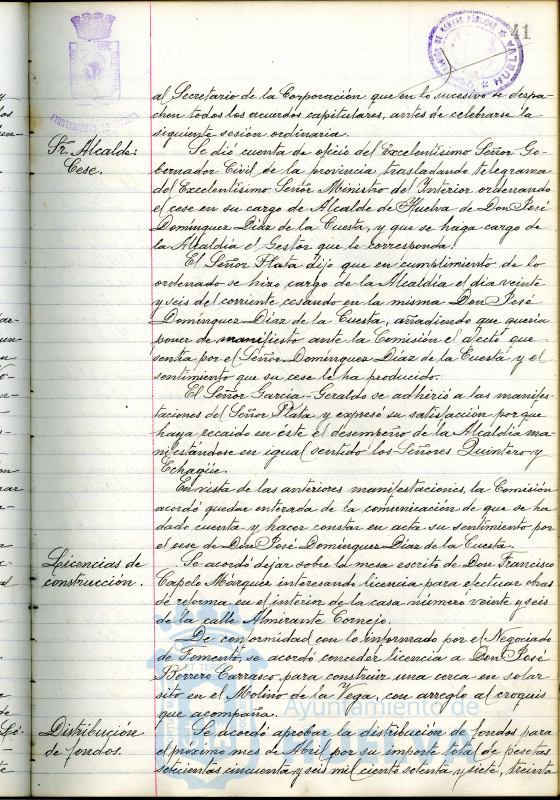 41
al Secretario de la Corporación que en lo sucesivo se despa-
chen todos los acuerdos capitulares, antes de celebrarse la
siguiente sesión ordinaria.
Sr. Alcalde:
Cese.
Se dió cuenta de oficio del Excelentísimo Señor Go-
bernador Civil de la provincia trasladando telegrama
del Excelentísimo Señor Ministro del Interior ordenando
el cese en su cargo de Alcalde de Huelva de Don José
Domínguez Díaz de la Cuesta, y que se haga cargo de
la Alcaldía el Gestor que le corresponda.
El Señor Plata dijo que en cumplimiento de lo
ordenado se hizo cargo de la Alcaldía el día veinte
y seis del corriente cesando en la misma Don José
Domínguez Díaz de la Cuesta, añadiendo que quería
poner de manifiesto ante la Comisión el afecto que
sentía por el Señor Domínguez Díaz de la Cuesta y el
sentimiento que su cese le ha producido.
El Señor García-Geraldo se adhirió a las manifes-
taciones del Señor Plata y expresó su satisfacción porque
haya recaido en éste el desempeño de la Alcaldía ma
nifestándose en igual sentido los Señores Quintero y
Echagüe.
En vista de las anteriores manifestaciones, la Comisión
acordó quedar enterada de la comunicación de que se ha
dado cuenta y hacer constar en acta su sentimiento por
el cese de Don José Domínguez Díaz de la Cuesta.
Licencias de
construcción.
Se acordó dejar sobre la mesa escrito de Don Francisco
Capelo Márquez interesando licencia para efectuar obras
de reforma en el interior de la casa número veinte y seis
de la calle Almirante Cornejo.
De conformidad con lo informado por el Negociado
de Fomento, se acordó conceder licencia a Don José
Borrero Carrasco, para construir una cerca en solar
sito en el Molino de la Vega, con arreglo al croquis
que acompaña.
Ayuntamiento de
Distribución
de fondos.
Se acordó aprobar la distribución de fondos para
el próximo mes de Abril por su importe total de pesetas
setecientas cincuenta y seis mil ciento setenta y siete, treinta